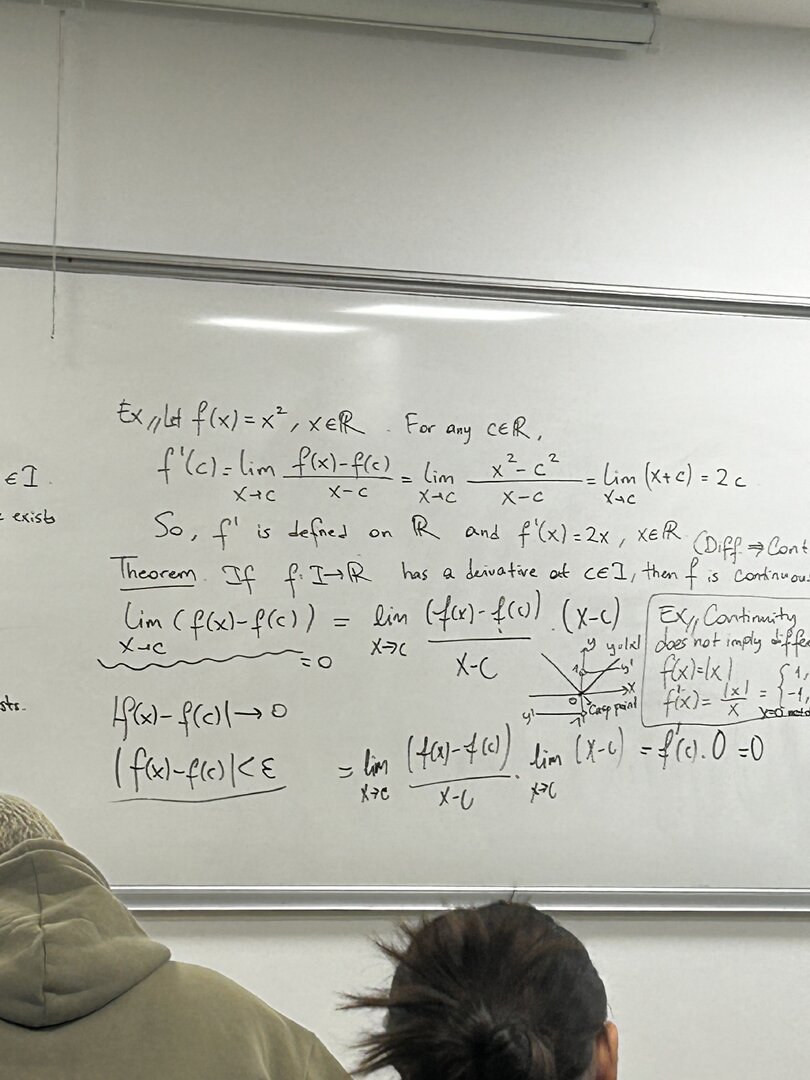 ∈ I.
exists
sts.
Ex // Let f(x) = x², x∈ℝ. For any c∈ℝ,
f'(c) = lim_{x→c} (f(x)-f(c))/(x-c) = lim_{x→c} (x²-c²)/(x-c) = lim_{x→c} (x+c) = 2c
So, f' is defined on ℝ and f'(x) = 2x, x∈ℝ.
(Diff ⇒ Cont
Theorem. If f: I→ℝ has a derivative at c∈I, then f is continuou
lim_{x→c} (f(x)-f(c)) = lim_{x→c} (f(x)-f(c))/(x-c) · (x-c)
= 0
|f(x)-f(c)| → 0
|f(x)-f(c)| < ε
= lim_{x→c} (f(x)-f(c))/(x-c) · lim_{x→c} (x-c) = f'(c). 0 = 0
y y=|x|
1 y'
0 x
y' -1 Casp point
Ex // Continuity
does not imply differe
f(x) = |x|
f'(x) = |x|/x = { 1,
-1,